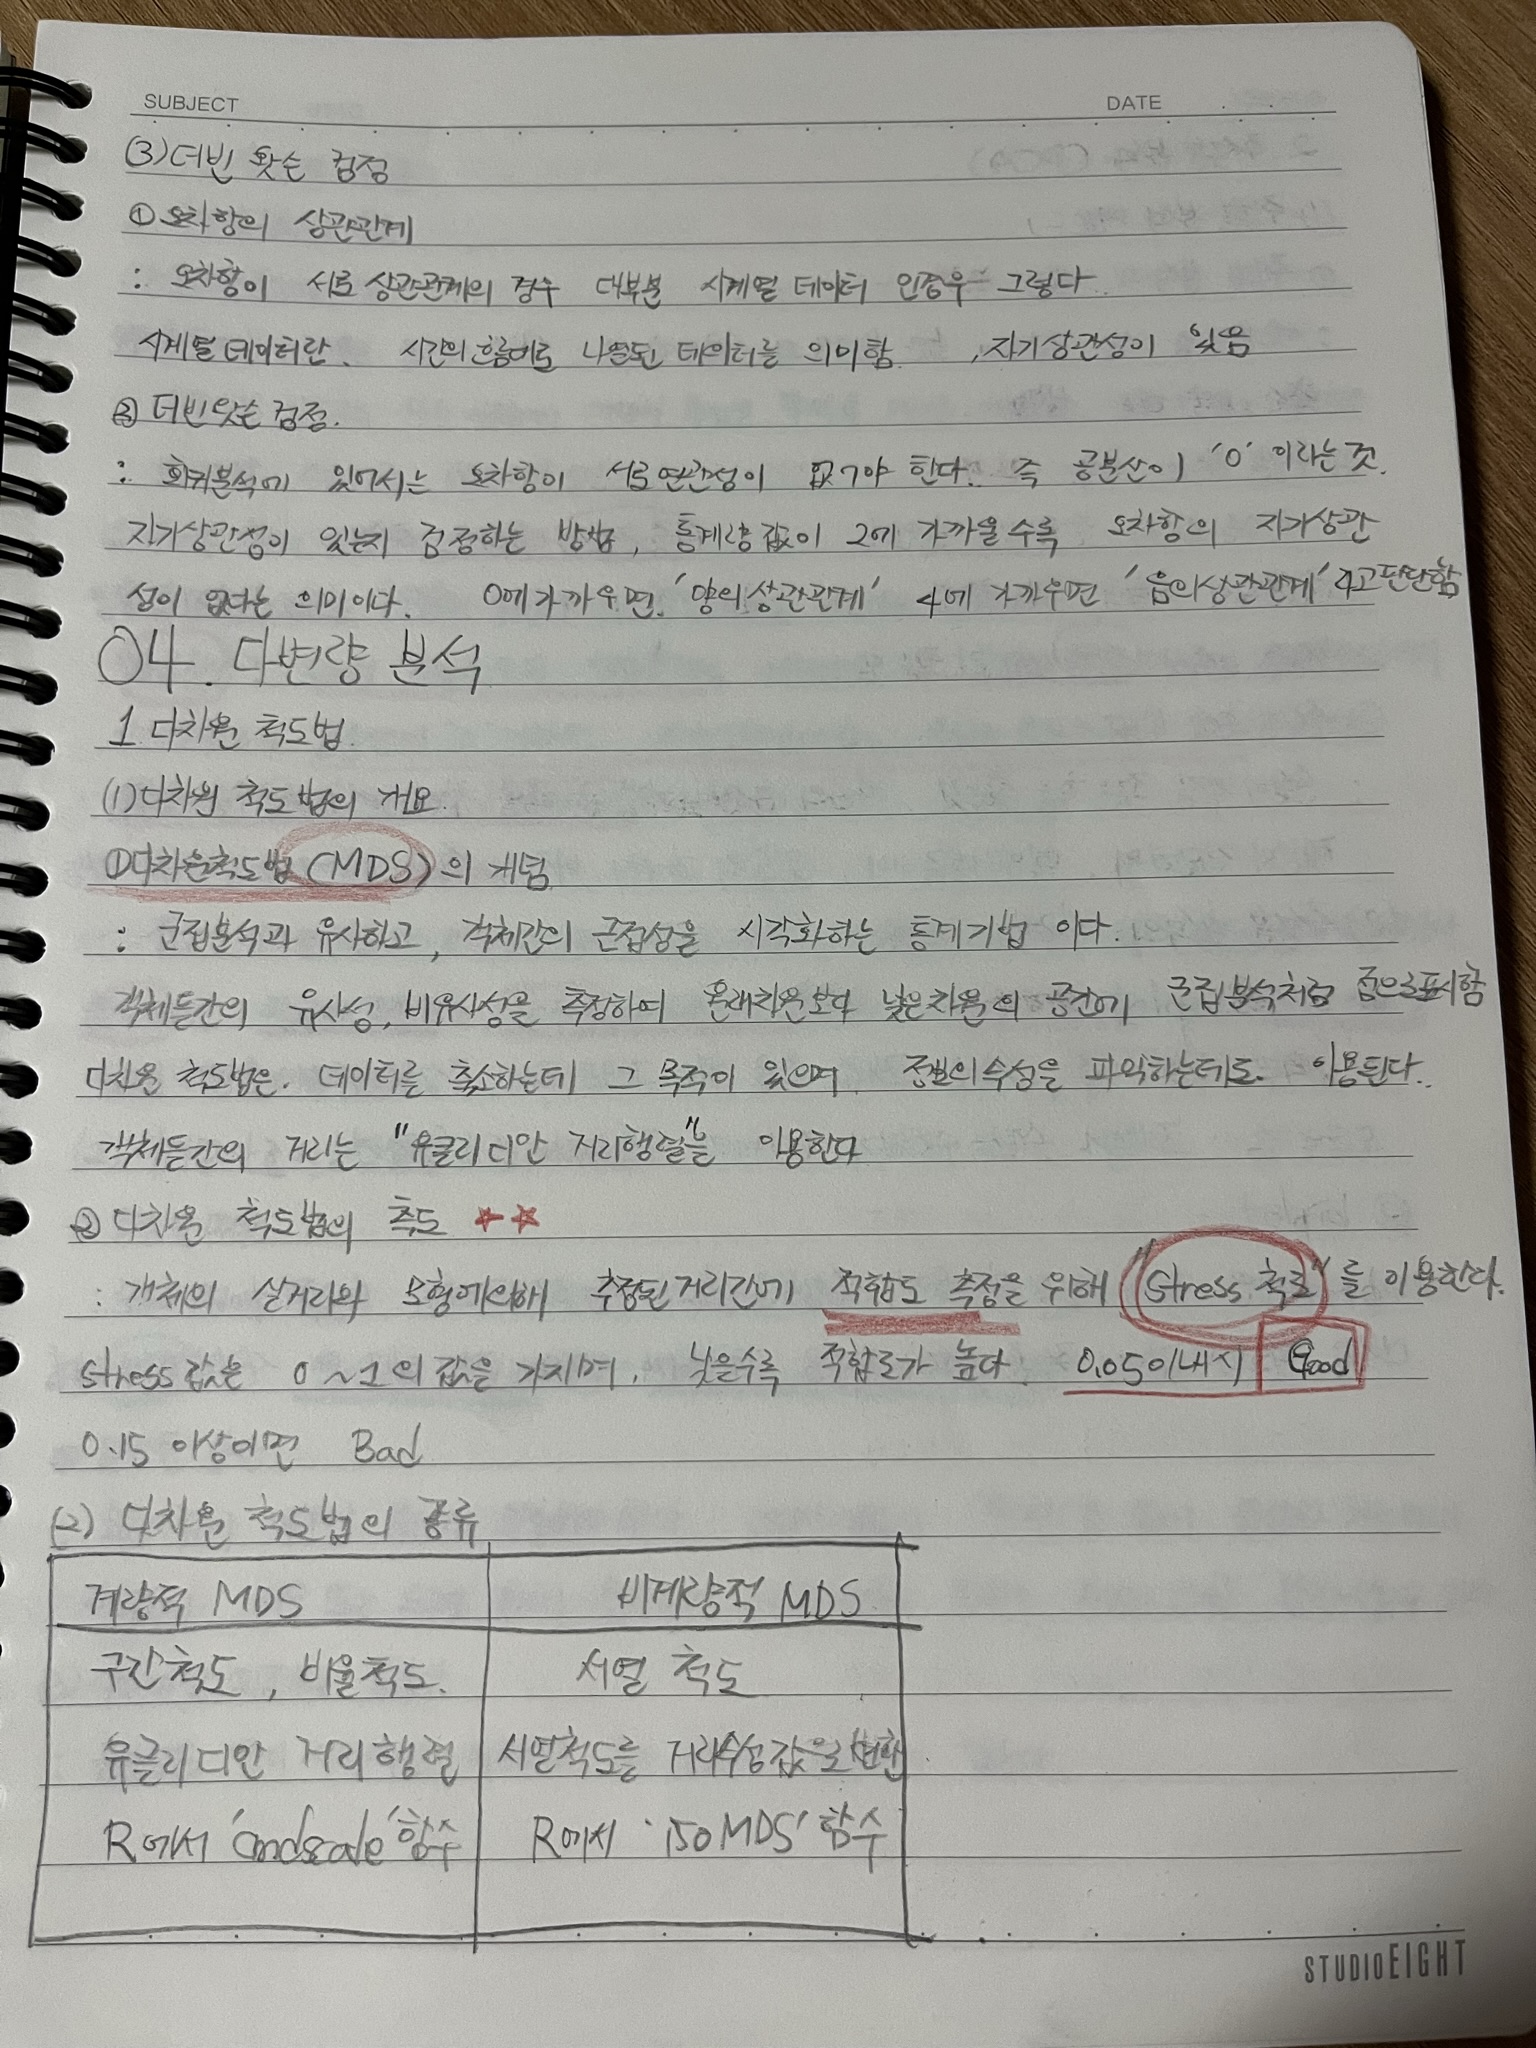 SUBJECT DATE
(3) 더빈 왓슨 검정
① 오차항의 상관관계
: 오차항이 서로 상관관계의 경우 대부분 시계열 데이터 인경우 그렇다.
시계열 데이터란. 시간의 흐름에로 나열된 데이터를 의미함 , 자기상관성이 있음
② 더빈왓슨검정.
: 회귀분석에 있어서는 오차항이 서로연관성이 없어야 한다. 즉 공분산이 '0' 이라는 것.
자기상관성이 있는지 검정하는 방법, 통계량값이 2에 가까울수록 오차항의 자기상관
성이 없다는 의미이다. 0에가까우면 '양의상관관계' 4에 가까우면 '음의상관관계'라고판단함
04. 다변량 분석
1. 다차원 척도법.
(1) 다차원 척도법의 개요.
① 다차원척도법 (MDS)의 개념
: 군집분석과 유사하고, 객체간의 근접성을 시각화하는 통계기법 이다.
객체들간의 유사성, 비유사성을 측정하여 원래차원보다 낮은차원의 공간에 군집분석처럼 점으로표시함
다차원 척도법은. 데이터를 축소하는데 그 목적이 있으며 정보의속성을 파악하는데도. 이용된다.
객체들간의 거리는 "유클리디안 거리행렬"을 이용한다
② 다차원 척도법의 측도 ☆☆
: 개체의 실거리와 모형에의해 추정된거리간에 적합도 측정을 위해 "stress 척도"를 이용한다.
stress값은 0~1의 값을 가지며, 낮을수록 적합도가 높다. 0.05이내시 Good
0.15 이상이면 Bad
(2) 다차원 척도법의 종류
계량적 MDS 비계량적 MDS
구간척도, 비율척도. 서열 척도
유클리디안 거리행렬 서열척도를 거리속성값으로 변환
R에서 'cmdscale' 함수 R에서 'isoMDS' 함수
STUDIOEIGHT